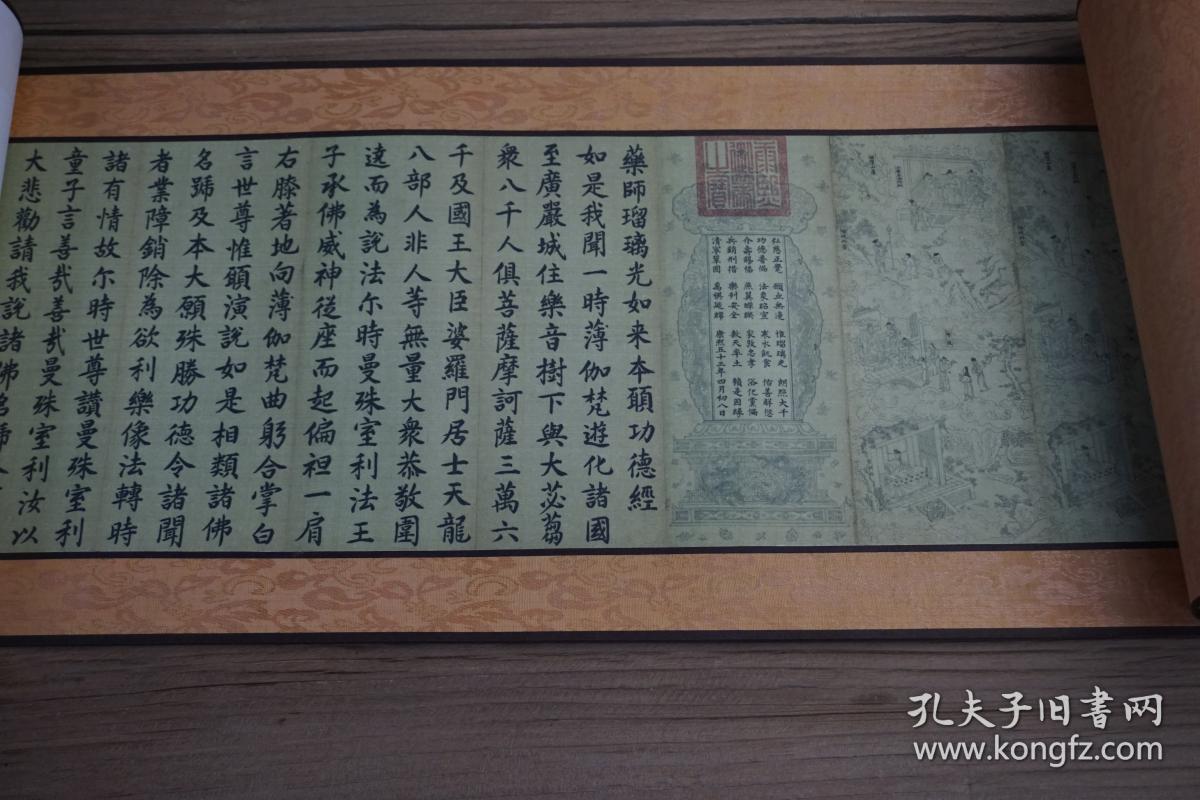 仁慈正覺 願垂無邊 惟瑠璃光 朗照大千
功德普備 法象昭宣 寒水飢食 佑善解愆
介壽錫福 燕翼蟬聯 家敦忠孝 俗化黨偏
兵銷刑措 樂利安全 敷天率土 賴是因緣
清寧鞏固 萬禩延綿 康熙五十三年四月初八日
藥師瑠璃光如来本願功德經
如是我聞一時薄伽梵遊化諸國
至廣嚴城住樂音樹下與大苾蒭
衆八千人俱菩薩摩訶薩三萬六
千及國王大臣婆羅門居士天龍
八部人非人等無量大衆恭敬圍
遶而為說法尔時曼殊室利法王
子承佛威神從座而起偏袒一肩
右膝著地向薄伽梵曲躬合掌白
言世尊惟願演說如是相類諸佛
名號及本大願殊勝功德令諸聞
者業障銷除為欲利樂像法轉時
諸有情故尔時世尊讚曼殊室利
童子言善哉善哉曼殊室利汝以
大悲勸請我說諸佛名號
孔夫子旧書网
www.kongfz.com